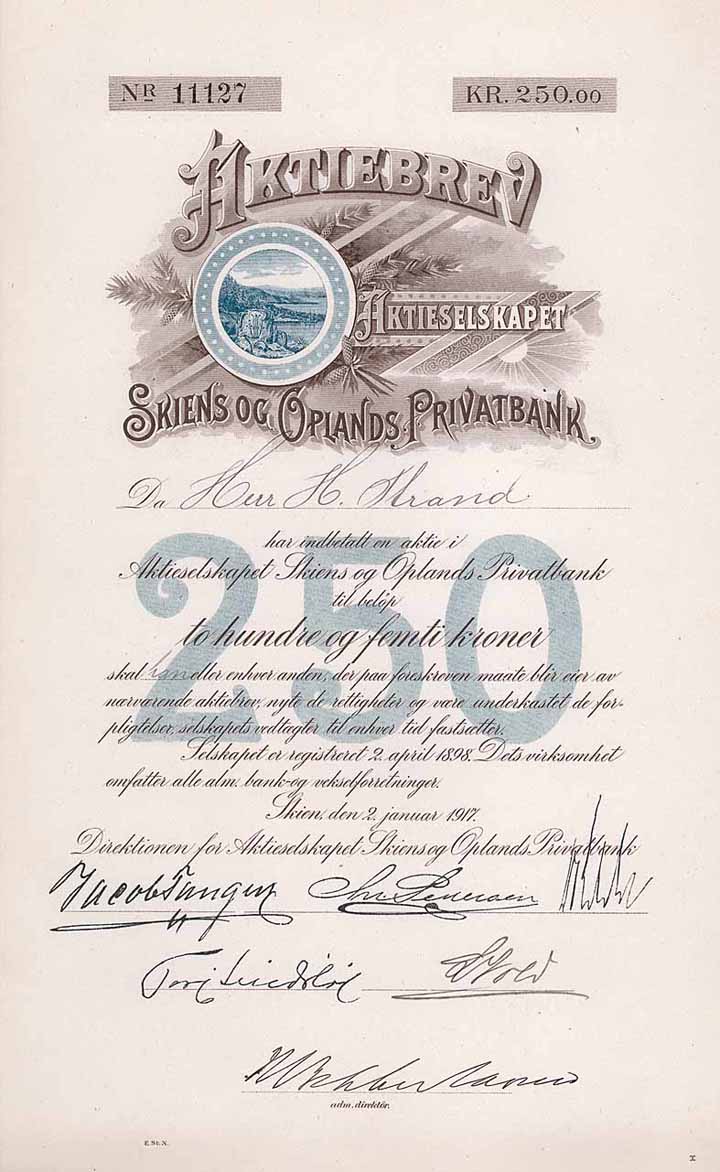 NR 11127
KR. 250.00
AKTIEBREV
AKTIESELSKAPET
SKIENS OG OPLANDS PRIVATBANK.
Da Herr H. Strand
har indbetalt en aktie i
Aktieselskapet Skiens og Oplands Privatbank
til beløp
250
to hundre og femti kroner
skal han eller enhver anden, der paa foreskreven maate blir eier av
nærværende aktiebrev, nyte de rettigheter og være underkastet de for-
pligtelser, selskapets vedtægter til enhver tid fastsætter.
Selskapet er registreret 2. april 1898. Dets virksomhet
omfatter alle alm. bank- og vekselforretninger.
Skien, den 2. januar 1917.
Direktionen for Aktieselskapet Skiens og Oplands Privatbank
Jacob Chr. Pedersen
Wold
adm. direktör.
E. St. N.
X